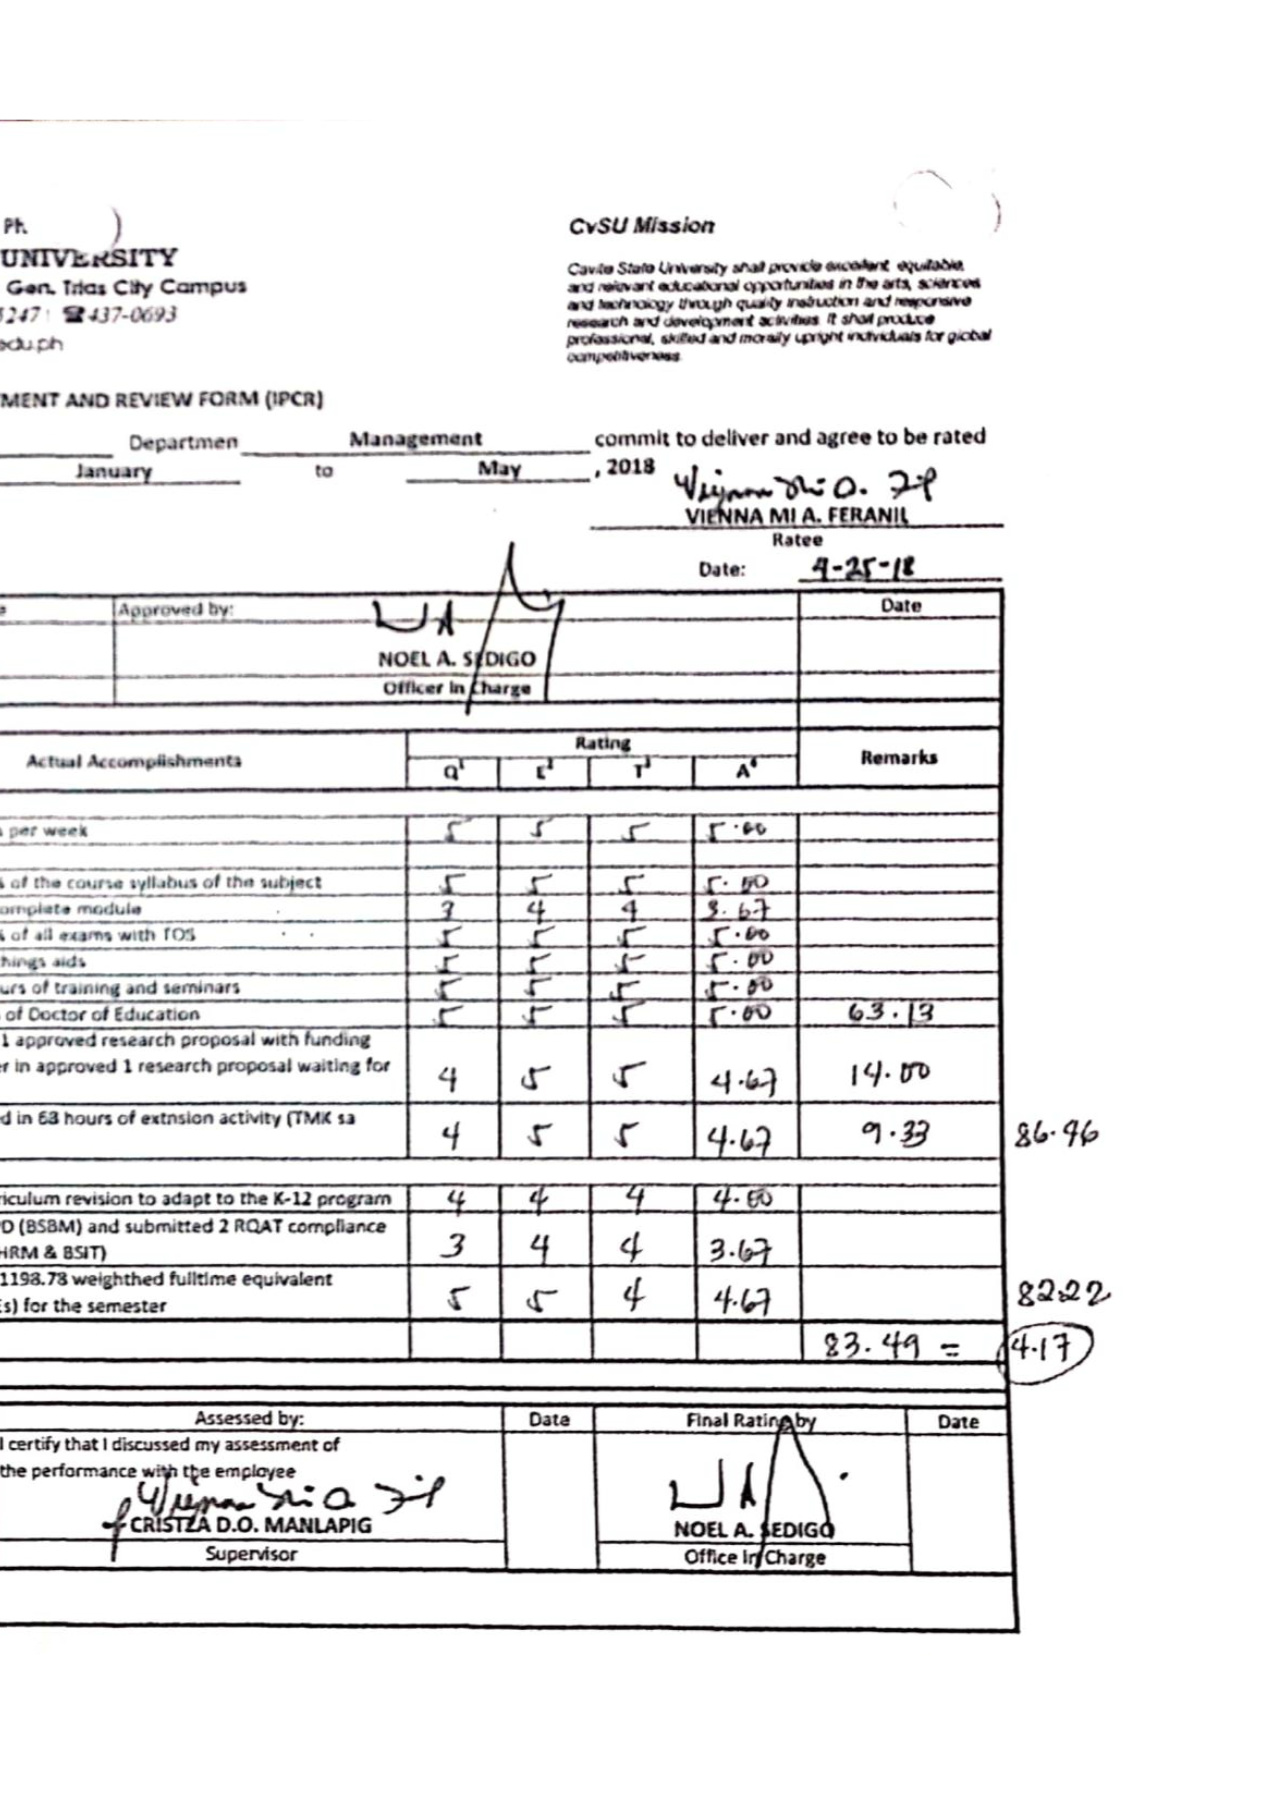 Ph.
CvSU Mission
UNIVERSITY
Gen. Trias City Campus
5247 ☎437-0693
edu.ph
Cavite State University shall provide excellent, equitable,
and relevant educational opportunities in the arts, sciences
and technology through quality instruction and responsive
research and development activities. It shall produce
professional, skilled and morally upright individuals for global
competitiveness.
MENT AND REVIEW FORM (IPCR)
Departmen Management commit to deliver and agree to be rated
January to May , 2018
VIENNA MI A. FERANIL
Ratee
Date: 4-25-18
Approved by: Date
NOEL A. SEDIGO
Officer In Charge
Actual Accomplishments Rating Remarks
Q¹ E² T³ A⁴
per week 5 5 5 5.00
of the course syllabus of the subject 5 5 5 5.00
omplete module 3 4 4 3.67
of all exams with TOS 5 5 5 5.00
hings aids 5 5 5 5.00
urs of training and seminars 5 5 5 5.00
of Doctor of Education 5 5 5 5.00 63.13
1 approved research proposal with funding
er in approved 1 research proposal waiting for 4 5 5 4.67 14.00
d in 63 hours of extnsion activity (TMK sa 4 5 5 4.67 9.33 86.46
iculum revision to adapt to the K-12 program 4 4 4 4.00
D (BSBM) and submitted 2 RQAT compliance
HRM & BSIT) 3 4 4 3.67
1198.78 weighthed fulltime equivalent
Es) for the semester 5 5 4 4.67 82.22
83.49 = 4.17
Assessed by: Date Final Rating by Date
I certify that I discussed my assessment of
the performance with the employee
CRISTZA D.O. MANLAPIG NOEL A. SEDIGO
Supervisor Office In Charge